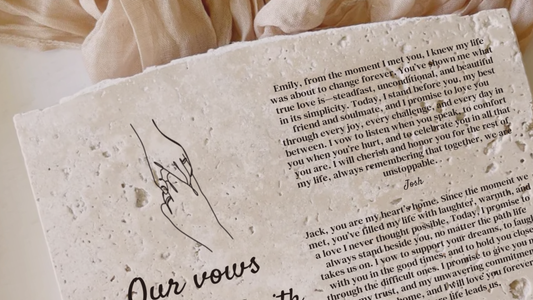 Emily, from the moment I met you, I knew my life
was about to change forever. You've shown me what
true love is—steadfast, unconditional, and beautiful
in its simplicity. Today, I stand before you, my best
friend and soulmate, and I promise to love you
through every joy, every challenge, and every day in
between. I vow to listen when you speak, to comfort
you when you're hurt, and to celebrate you in all that
you are. I will cherish and honor you for the rest of
my life, always remembering that together, we are
unstoppable.
Josh
Jack, you are my heart's home. Since the moment we
met, you've filled my life with laughter, warmth, and
a love I never thought possible. Today, I promise to
always stand beside you, no matter the path life
takes us on. I vow to support your dreams, to laugh
with you in the good times, and to hold you close
through the difficult ones. I promise to give you
my trust, and my unwavering commitment
home, and I'll love you forever
life leads us,
Our vows